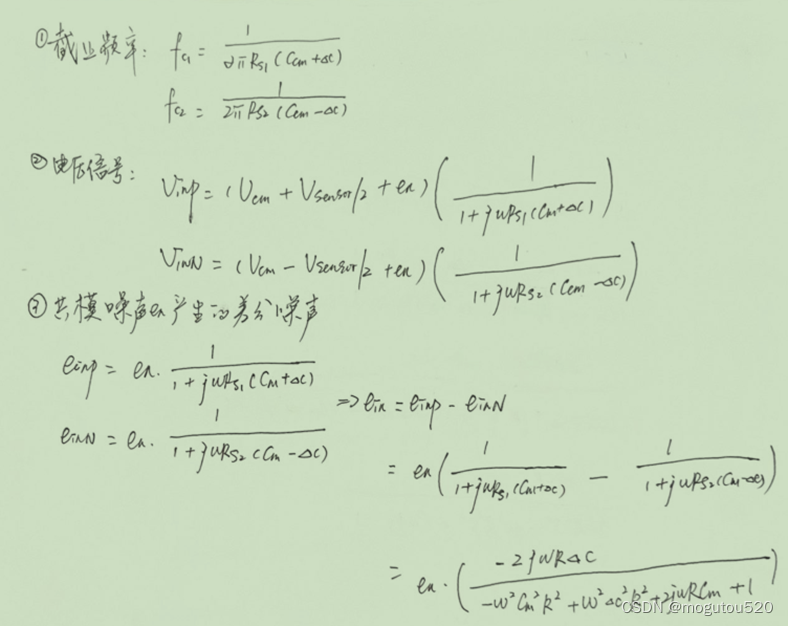 ①截止频率: fc1 = 1/(2πRs1(Ccm+ΔC))
fc2 = 1/(2πRs2(Ccm-ΔC))
②电压信号:
VinP = (Vcm + Vsensor/2 + en)(1/(1+jωRs1(Cm+ΔC)))
VinN = (Vcm - Vsensor/2 + en)(1/(1+jωRs2(Ccm-ΔC)))
③共模噪声en产生的差分噪声
einp = en·1/(1+jωRs1(Cm+ΔC))
einN = en·1/(1+jωRs2(Cm-ΔC))
=> ein = einp - einN
= en(1/(1+jωRs1(Cm+ΔC)) - 1/(1+jωRs2(Cm-ΔC)))
= en·(-2jωRΔC/(-ω²Cm²R²+ω²ΔC²R²+2jωRCm+1))
CSDN @mogutou520